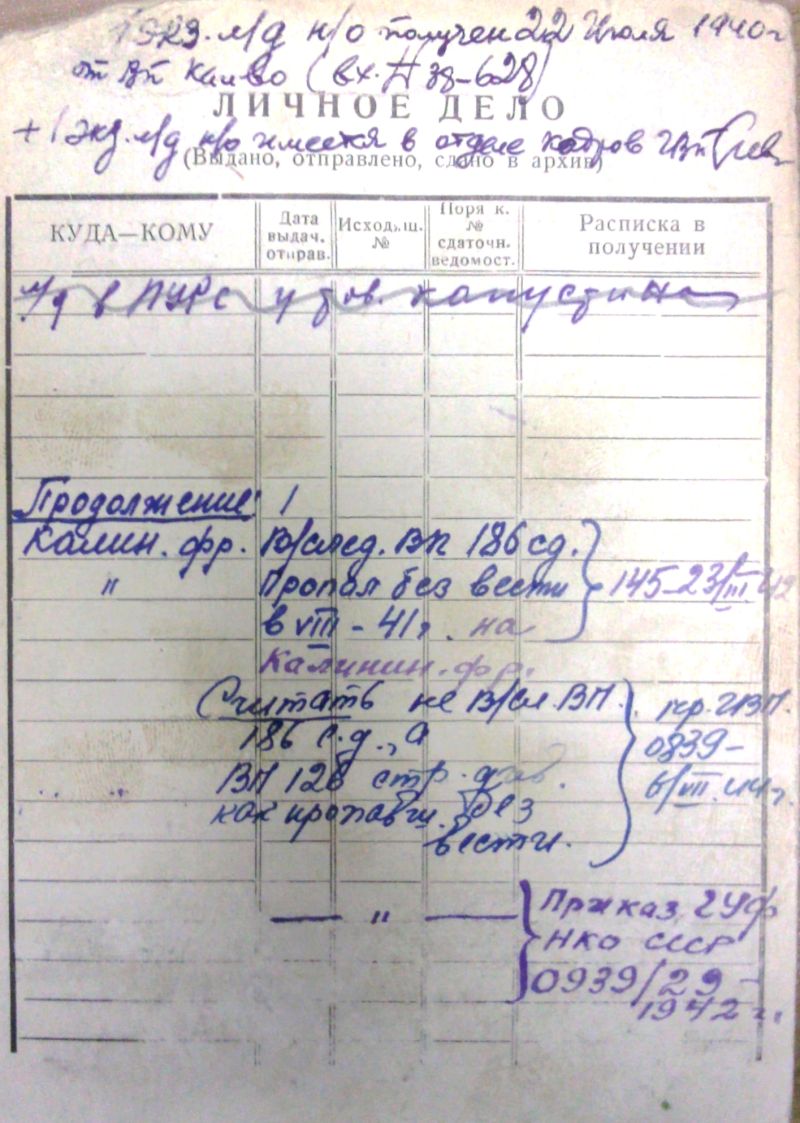 1 экз. л/д н/о получен 22 июля 1940 г
от ВП КалВО (вх. № 38-628)
ЛИЧНОЕ ДЕЛО
+ 1 экз. л/д н/о имеется в отделе кадров ГВП
(Выдано, отправлено, сдано в архив)
КУДА—КОМУ
Дата выдач. отправ.
Исходящ. №
Поряк. № сдаточн. ведомост.
Расписка в получении
л/д в ПУРс у тов. Капустина
Продолжение: 1
Калин. фр. В/след. ВП 186 сд.
" Пропал без вести 145-23/III 42
в VIII - 41 г. на
Калинин. фр.
Считать не В/сл. ВП. пр. ГВП.
186 с.д., а 0839-
ВП 126 стр. див. 6/VII.44 г.
как пропавш. без
вести.
— " — Приказ ГУФ
НКО СССР
0939/29-
1942 г.